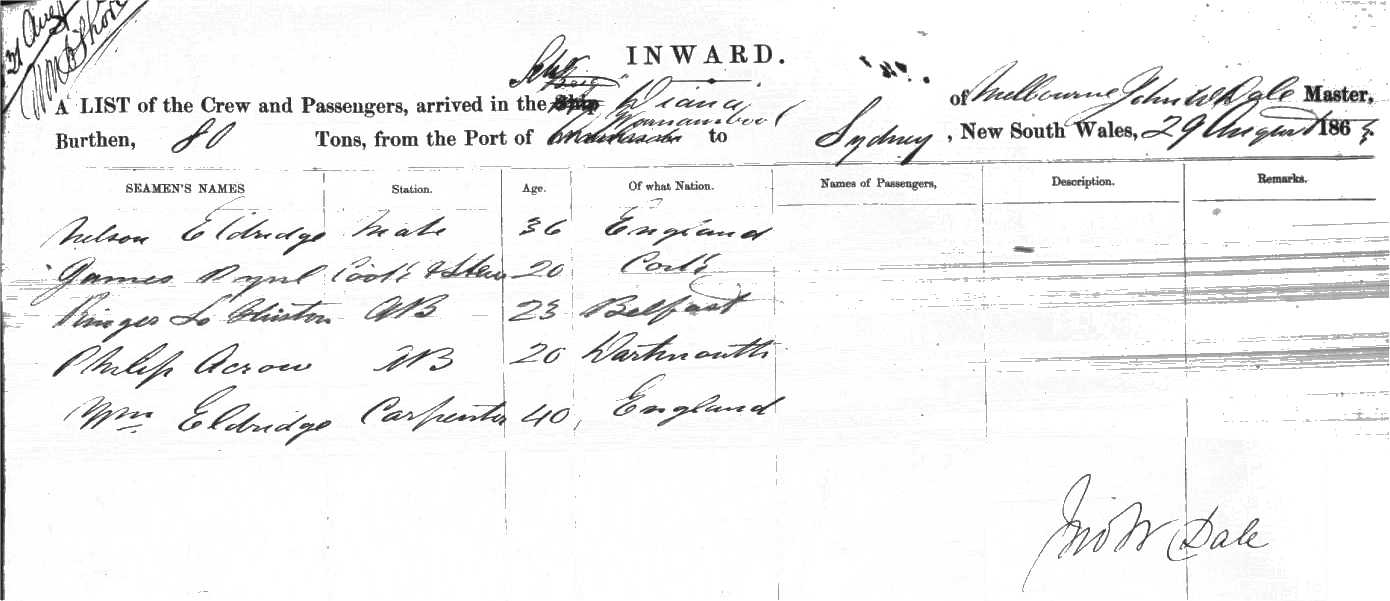 31 Augt
INWARD.
Schr
A LIST of the Crew and Passengers, arrived in the Ship "Diana" of Melbourne John W Dale Master,
Warnambool
Burthen, 80 Tons, from the Port of to Sydney, New South Wales, 29 August 186
SEAMEN'S NAMES Station. Age. Of what Nation. Names of Passengers, Description. Remarks.
Nelson Eldridge Mate 36 England
James Cook & Stew 20 Cork
AB 23 Belfast
Philip Acrow AB 20 Dartmouth
Wm Eldridge Carpenter 40, England
Jno W Dale